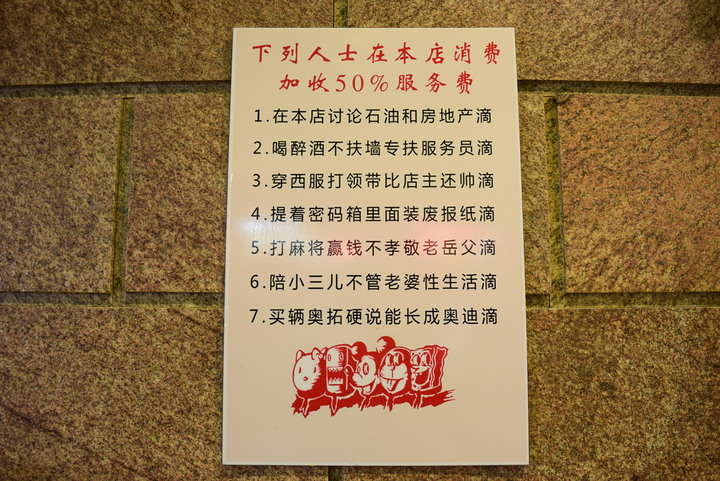 下列人士在本店消费
加收50%服务费
1.在本店讨论石油和房地产滴
2.喝醉酒不扶墙专扶服务员滴
3.穿西服打领带比店主还帅滴
4.提着密码箱里面装废报纸滴
5.打麻将赢钱不孝敬老岳父滴
6.陪小三儿不管老婆性生活滴
7.买辆奥拓硬说能长成奥迪滴